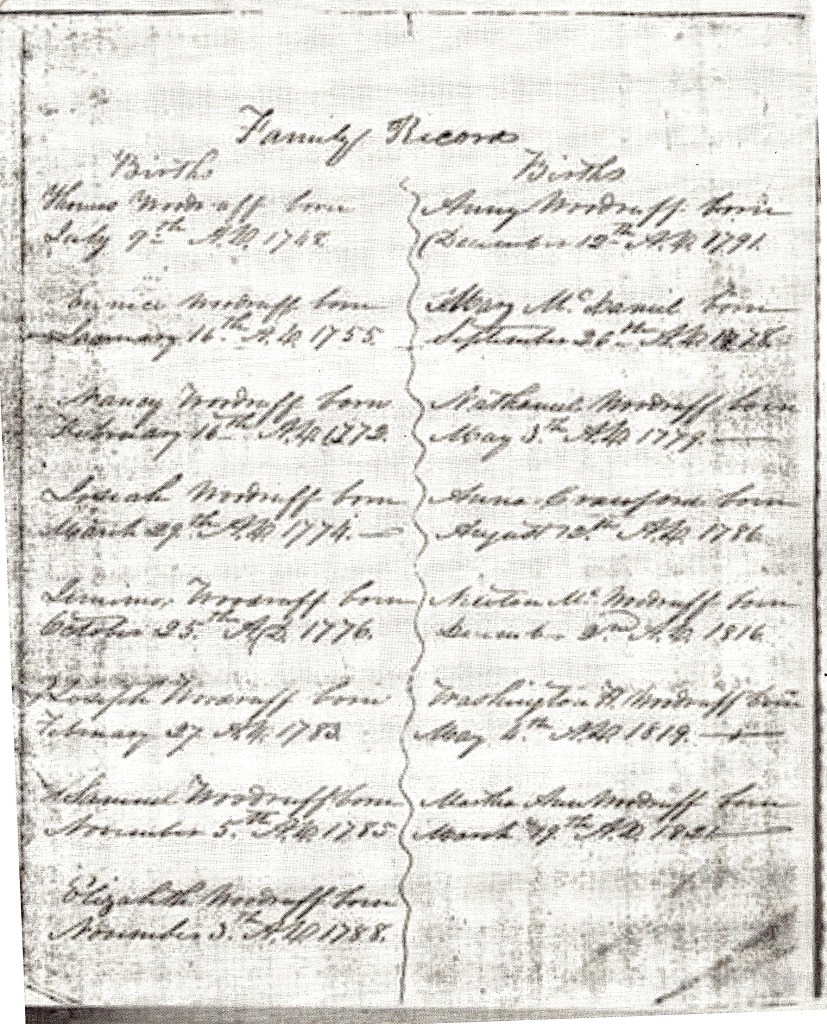 Family Record
Births
Thomas Woodruff born
July 9th A.D. 1748
Eunice Woodruff born
January 16th A.D. 1755.
Nancy Woodruff born
February 16th A.D. 1772.
Josiah Woodruff born
March 29th A.D. 1774.
Woodruff born
October 25th A.D. 1776.
Joseph Woodruff born
February 27 A.D. 1783
Samuel Woodruff born
November 5th A.D. 1785
Elizabeth Woodruff born
November 3th A.D. 1788.
Births
Anny Woodruff born
December 12th A.D. 1791.
Mary McDaniel born
September 26th A.D.
Nathaniel Woodruff born
May 3th A.D. 1779.
Anna Crawford born
August A.D. 1786
Newton Mc Woodruff born
December 2nd A.D. 1816
Washington H. Woodruff born
May 4th A.D. 1819.
Martha Ann Woodruff born
March 19th A.D. 1821